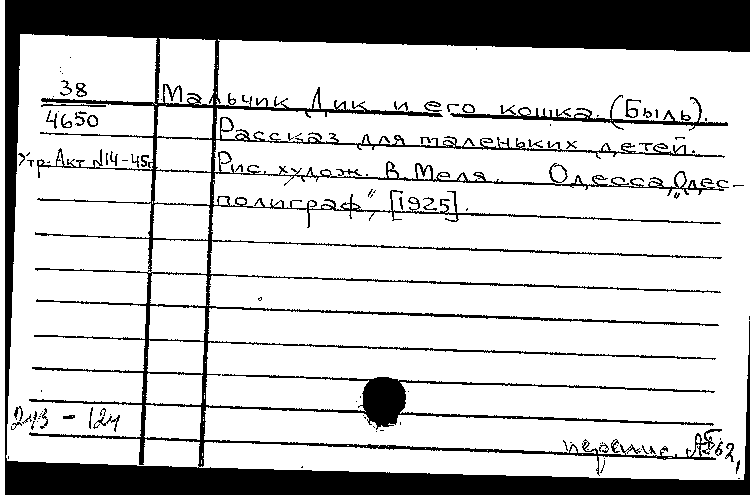 38
4650
Утр. Акт №14-45г
Мальчик Дик и его кошка. (Быль).
Рассказ для маленьких детей.
Рис. худож. В. Меля. Одесса, „Одес-
полиграф", [1925].
2уз - 124